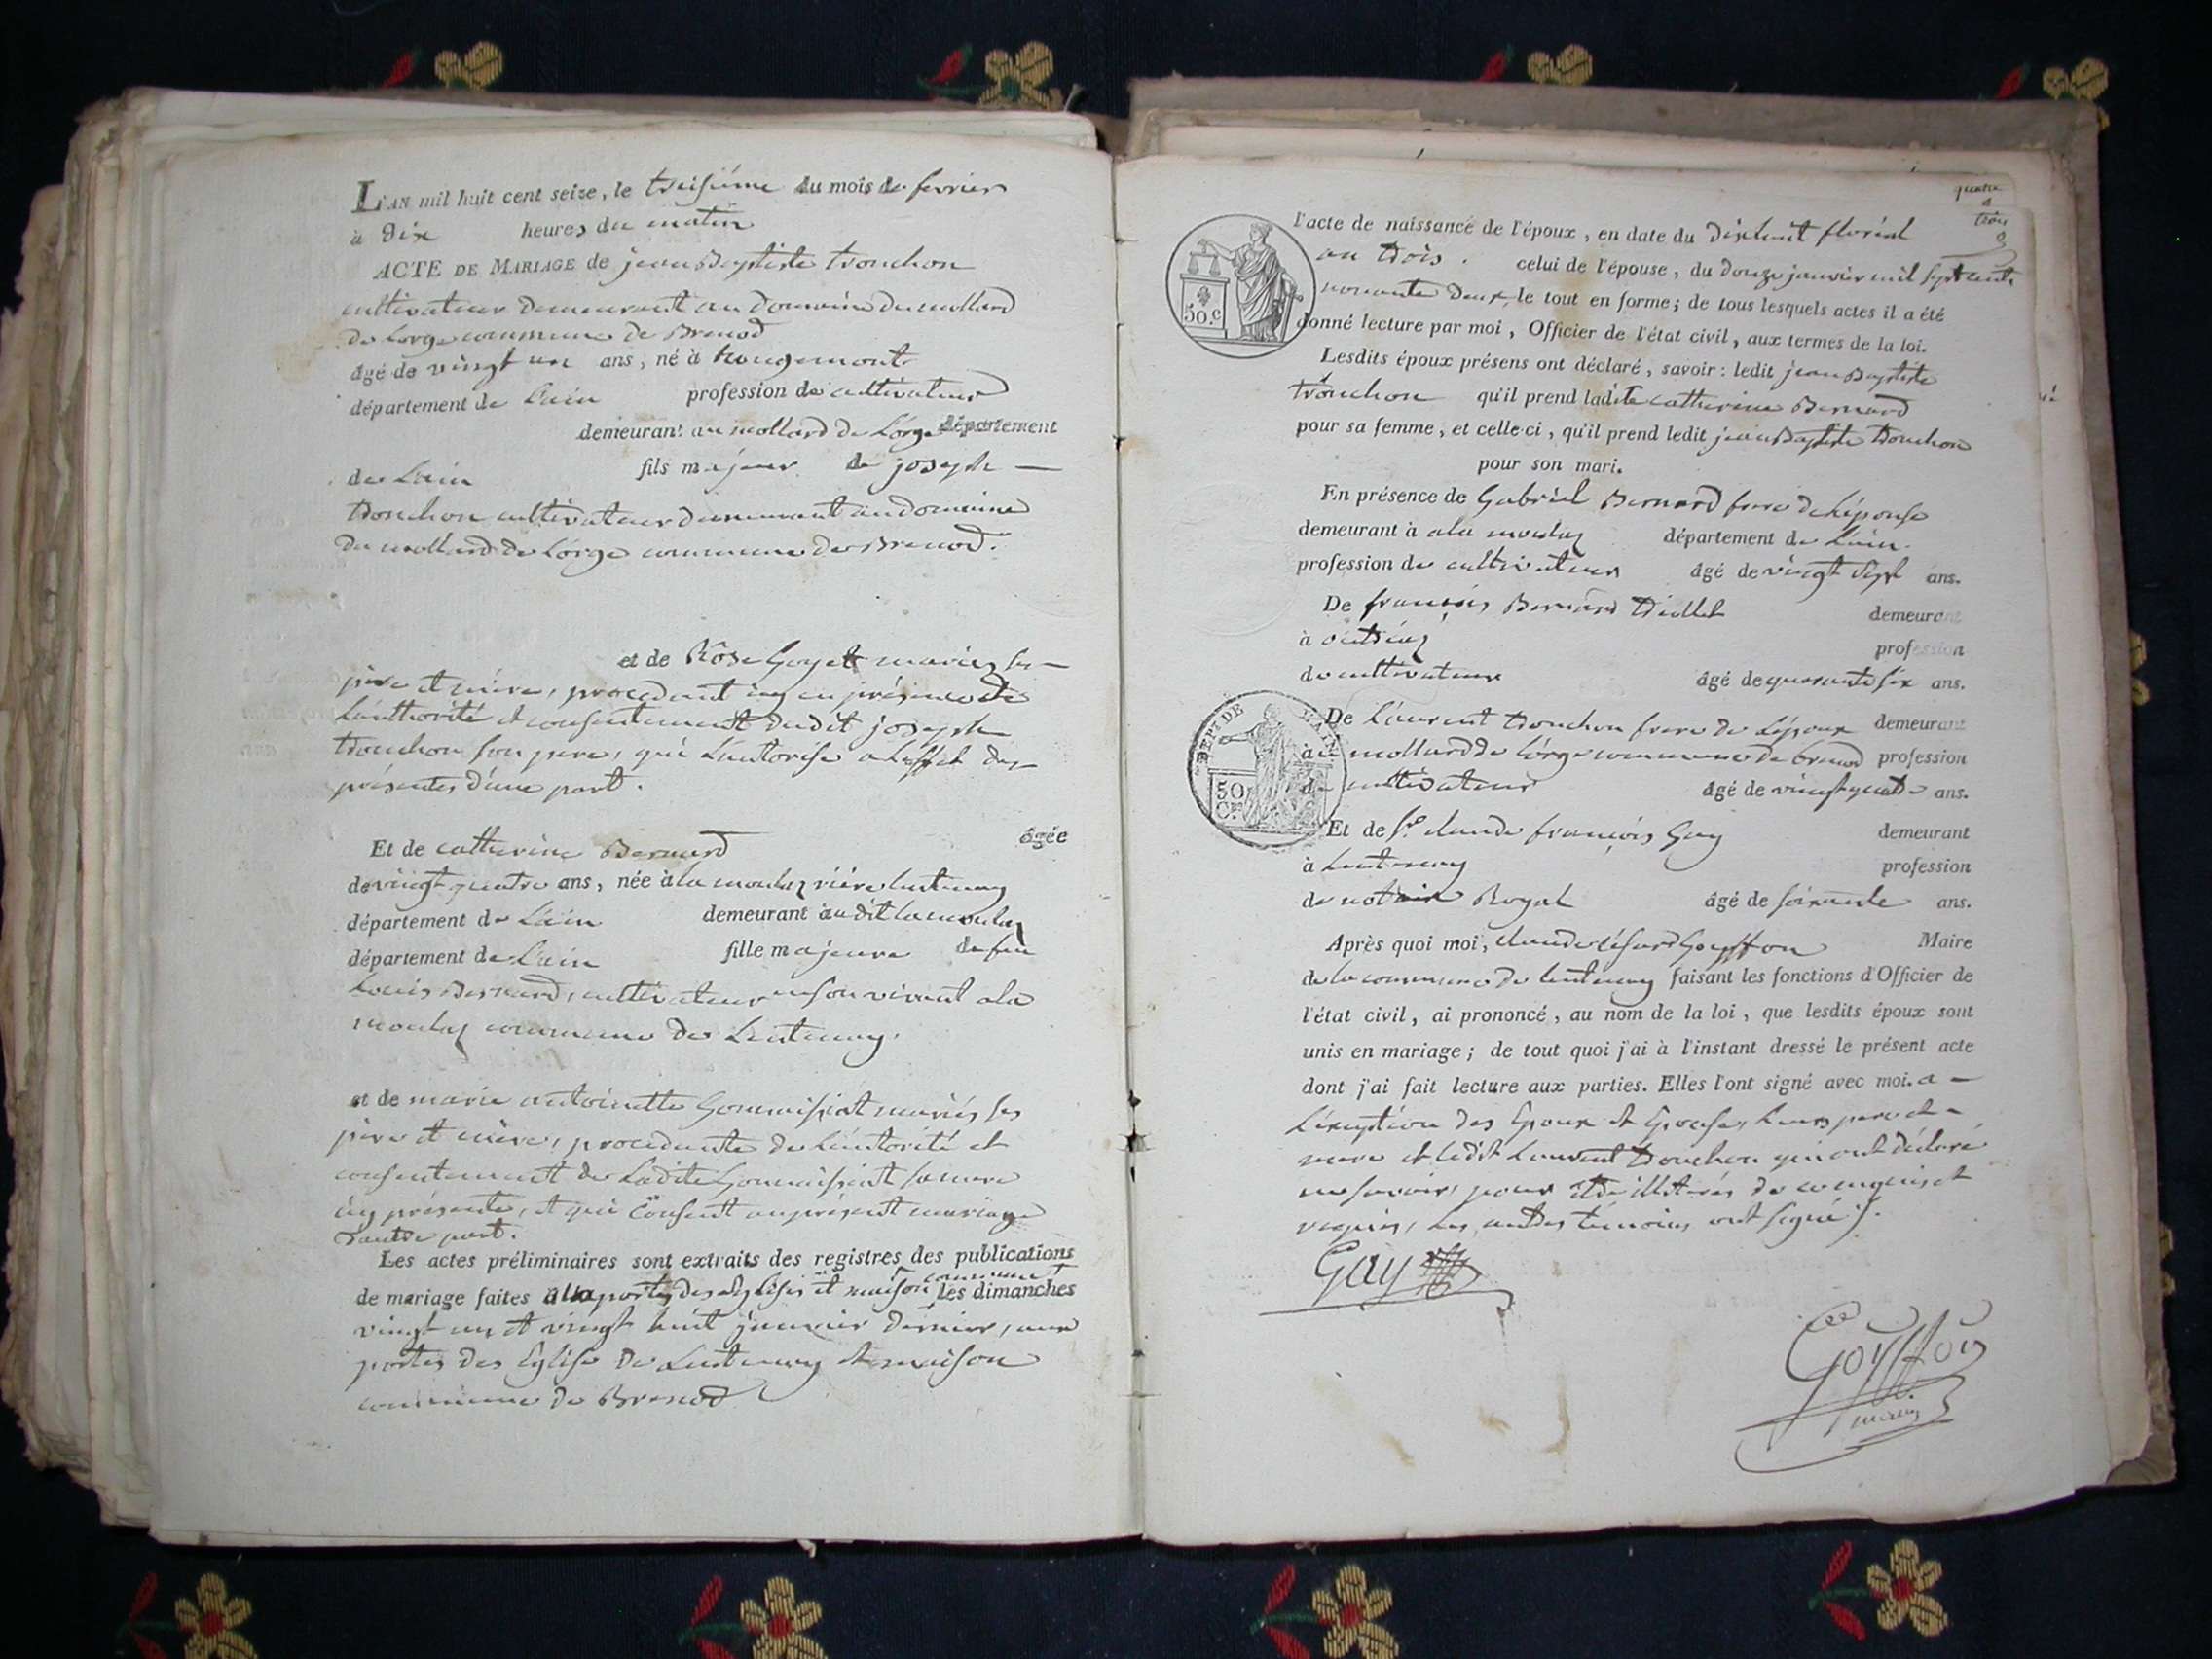 L'AN mil huit cent seize, le treisiéme du mois de fevrier
à Dix heures du matin
ACTE DE MARIAGE de jean Baptiste tronchon
cultivateur demeurant au domaine du mollard
de Lorge commune de Brenod
âgé de vingt un ans, né à hougemont
département de Lain profession de cultivateur
demeurant au mollard de Lorge département
de Lain fils majeur de joseph
tronchon cultivateur demeurant au domaine
du mollard de Lorge commune de Brenod.
et de Rose Goyet mariés ses
père et mère, procedant icy en présence de
Lauthorité et consentement dudit joseph
tronchon son pere, qui Lautorise a Leffet des
présentes d'une part.
Et de catherine Bernard âgée
de vingt quatre ans, née à la moulaz rière Lantenay
département de Lain demeurant audit lamoulaz
département de Lain fille majeure de feu
Louis Bernard, cultivateur en son vivant a la
moulaz commune de Lantenay.
et de marie antoinette Gommissiat mariés ses
père et mère, procedante de Lautorité et
consentement de Ladite Gommissiat sa mere
icy présente, et qui Consent au présent mariage
d'autre part.
Les actes préliminaires sont extraits des registres des publications
de mariage faites a la portes des Eglises et maison commune les dimanches
vingt un et vingt huit janvier dernier, aux
portes des Eglise de Lantenay et maison
commune de Brenod
quatre
trois
l'acte de naissance de l'époux, en date du dixhuit floréal
an trois. celui de l'épouse, du douze janvier mil sept cents
nonante deux, le tout en forme; de tous lesquels actes il a été
50.c
donné lecture par moi, Officier de l'état civil, aux termes de la loi.
Lesdits époux présens ont déclaré, savoir: ledit jean Baptiste
tronchon qu'il prend ladite catherine Bernard
pour sa femme, et celle-ci, qu'il prend ledit jean Baptiste tronchon
pour son mari.
En présence de Gabriel Bernard frere de Lépouse
demeurant à a la moulaz département de Lain.
profession de cultivateur âgé de vingt sept ans.
De françois Bernard demeurant
à profession
de cultivateur âgé de quarante six ans.
DEPT. DE L'AIN
De Laurent tronchon frere de Lépoux demeurant
au mollard de Lorge commune de brenod profession
50
CE.
de cultivateur âgé de vingt quatre ans.
Et de Sr. claude françois Gay demeurant
à Lantenay profession
de notaire Royal âgé de soixante ans.
Après quoi moi, claude Goyffon Maire
de la commune de Lantenay faisant les fonctions d'Officier de
l'état civil, ai prononcé, au nom de la loi, que lesdits époux sont
unis en mariage; de tout quoi j'ai à l'instant dressé le présent acte
dont j'ai fait lecture aux parties. Elles l'ont signé avec moi. a
Léxeption des Epoux et Epouse, Leurs pere et
mere et ledit Laurent tronchon qui ont déclaré
ne savoir pour etre illitérés de ce enquis et
requis, Les autres témoins ont signé.
Gay
Goyffon
maire